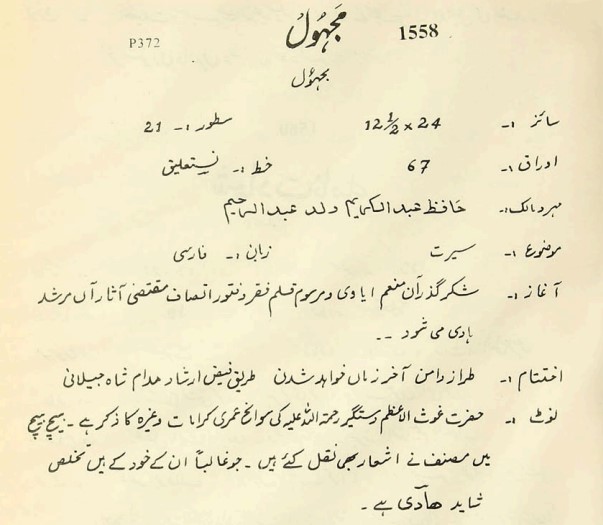 P372 مَجہُولُ 1558
مجہول
سائز :- 24 × 12½ سطور :- 21
اوراق :- 67 خط :- نستعلیق
مہر و مالک :- حافظ عبدالکریم ولد عبدالرحیم
موضوع :- سیرت زبان :- فارسی
آغاز :- شکر گذرآن منعم ایاوی و مرسوم قسلم فقر و فتور اتصاف مقتضی آثار آں مرشد
ہادی می شود --
اختتام :- طراز دامن آخر زباں خواہد شدن طریق فیض ارشاد مدام شاہ جیلانی
نوٹ :- حضرت غوث الاعظم دستگیر رحمۃ اللہ علیہ کی سوانح عمری کرامات وغیرہ کا ذکر ہے ۔ بیچ بیچ
میں مصنف نے اشعار بھی نقل کئے ہیں ۔ جو غالباً ان کے خود کے ہیں تخلص
شاید ھآدی ہے ۔